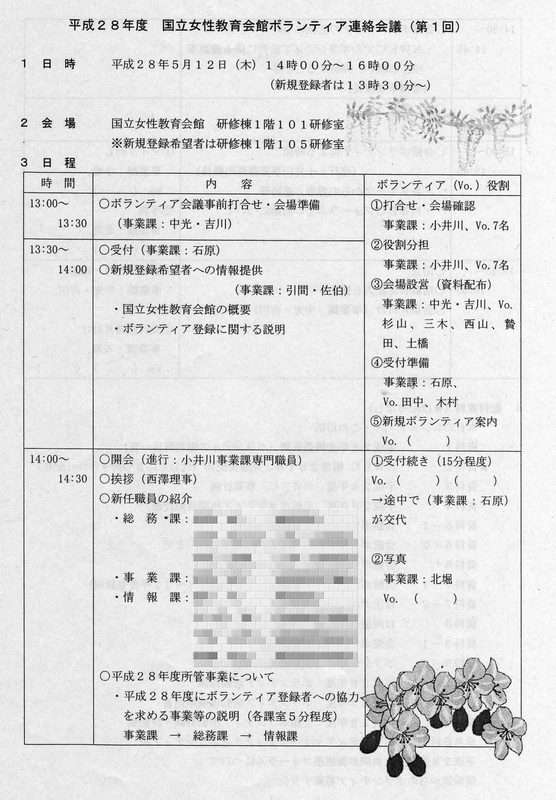 平成２８年度　国立女性教育会館ボランティア連絡会議（第１回）
１　日　時　　平成２８年５月１２日（木）１４時００分～１６時００分
（新規登録者は１３時３０分～）
２　会　場　　国立女性教育会館　研修棟１階１０１研修室
※新規登録希望者は研修棟１階１０５研修室
３　日　程
時　間
内　　容
ボランティア（Vo.）役割
13:00～
13:30
○ボランティア会議事前打合せ・会場準備
（事業課：中光・吉川）
13:30～
14:00
○受付（事業課：石原）
○新規登録希望者への情報提供
（事業課：引間・佐伯）
・国立女性教育会館の概要
・ボランティア登録に関する説明
①打合せ・会場確認
事業課：小井川、Vo.7名
②役割分担
事業課：小井川、Vo.7名
③会場設営（資料配布）
事業課：中光・吉川、Vo.
杉山、三木、西山、贄
田、土橋
④受付準備
事業課：石原、
Vo.田中、木村
⑤新規ボランティア案内
Vo.（　　　）
14:00～
14:30
○開会（進行：小井川事業課専門職員）
○挨拶（西澤理事）
○新任職員の紹介
・総　務　課：
・事　業　課：
・情　報　課：
○平成２８年度所管事業について
・平成２８年度にボランティア登録者への協力
を求める事業等の説明（各課室５分程度）
事業課　→　総務課　→　情報課
①受付続き（15分程度）
Vo.（　　　）（　　　）
→途中で（事業課：石原）
が交代
②写真
事業課：北堀
Vo.（　　　）